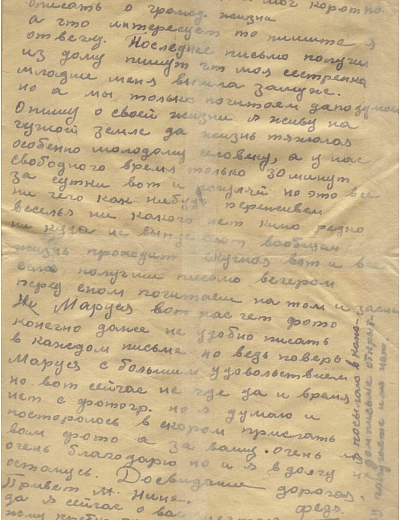 описать о громад. жизни
а что интересует то пишите я
отвечу. Последнее письмо получил
из дому пишут что моя сестренка
младше меня вышла замуж.
но а мы только почитаем да подумаем
Опишу о своей жизни я живу на
чужой земле да жизнь тяжолая
особенно молодому человеку, а у нас
свободного время только 30 минут
за сутки вот и погуляй но это все
ни чего как нибудь переживем
веселья ни какого нет кино редко
ни куда не выпускают вообщем
жизнь проходит скучная вот и все
получиш письмо вечером
перед сном почитаеш на том и заснеш
Ну Маруся вот нас чет фото
конечно даже не удобно писать
в каждом письме но ведь поверь
Маруся с большим удовольствием
но вот сейчас не где да и время
нет с фотогр. но я думаю и
посторолось в скором прислать
вам фото а за вашу очень и
очень благодарю но и я в долгу не
останусь. Досвидание дорогая,
Привет М. Нине. Федя.
да я сейчас о вас
я посылаю в каждом письме открыт.
получаете или нет